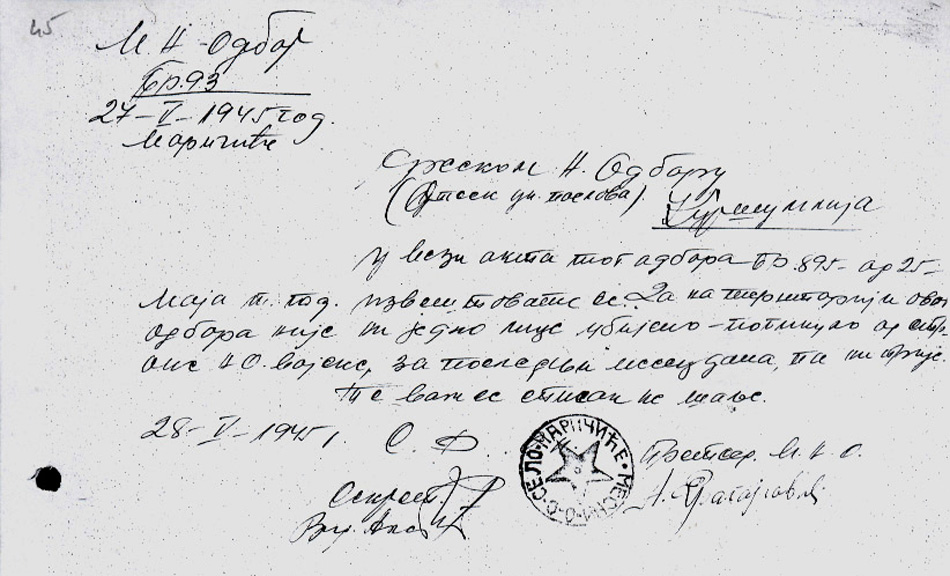 45
М Н Одбор
Бр. 93
27-V-1945 год.
Маричиће
Среском Н. Одбору
(Отсек ун. послова).
Куршумлија
У вези акта тог одбора Бр. 895- од 25-
маја т. год. извештовати се. Да на територији овог
одбора није ни једно лице убијено-погинуло од стр-
ане НО. војске, за последњи месец дана, па ни пријe.
Те вам се списак не шаље.
28-V-1945 г. С. Ф.
СЕЛО МАРИЧИЋЕ • МЕСНИ-О-О
Претсед. М. Н. О.
Секрет.